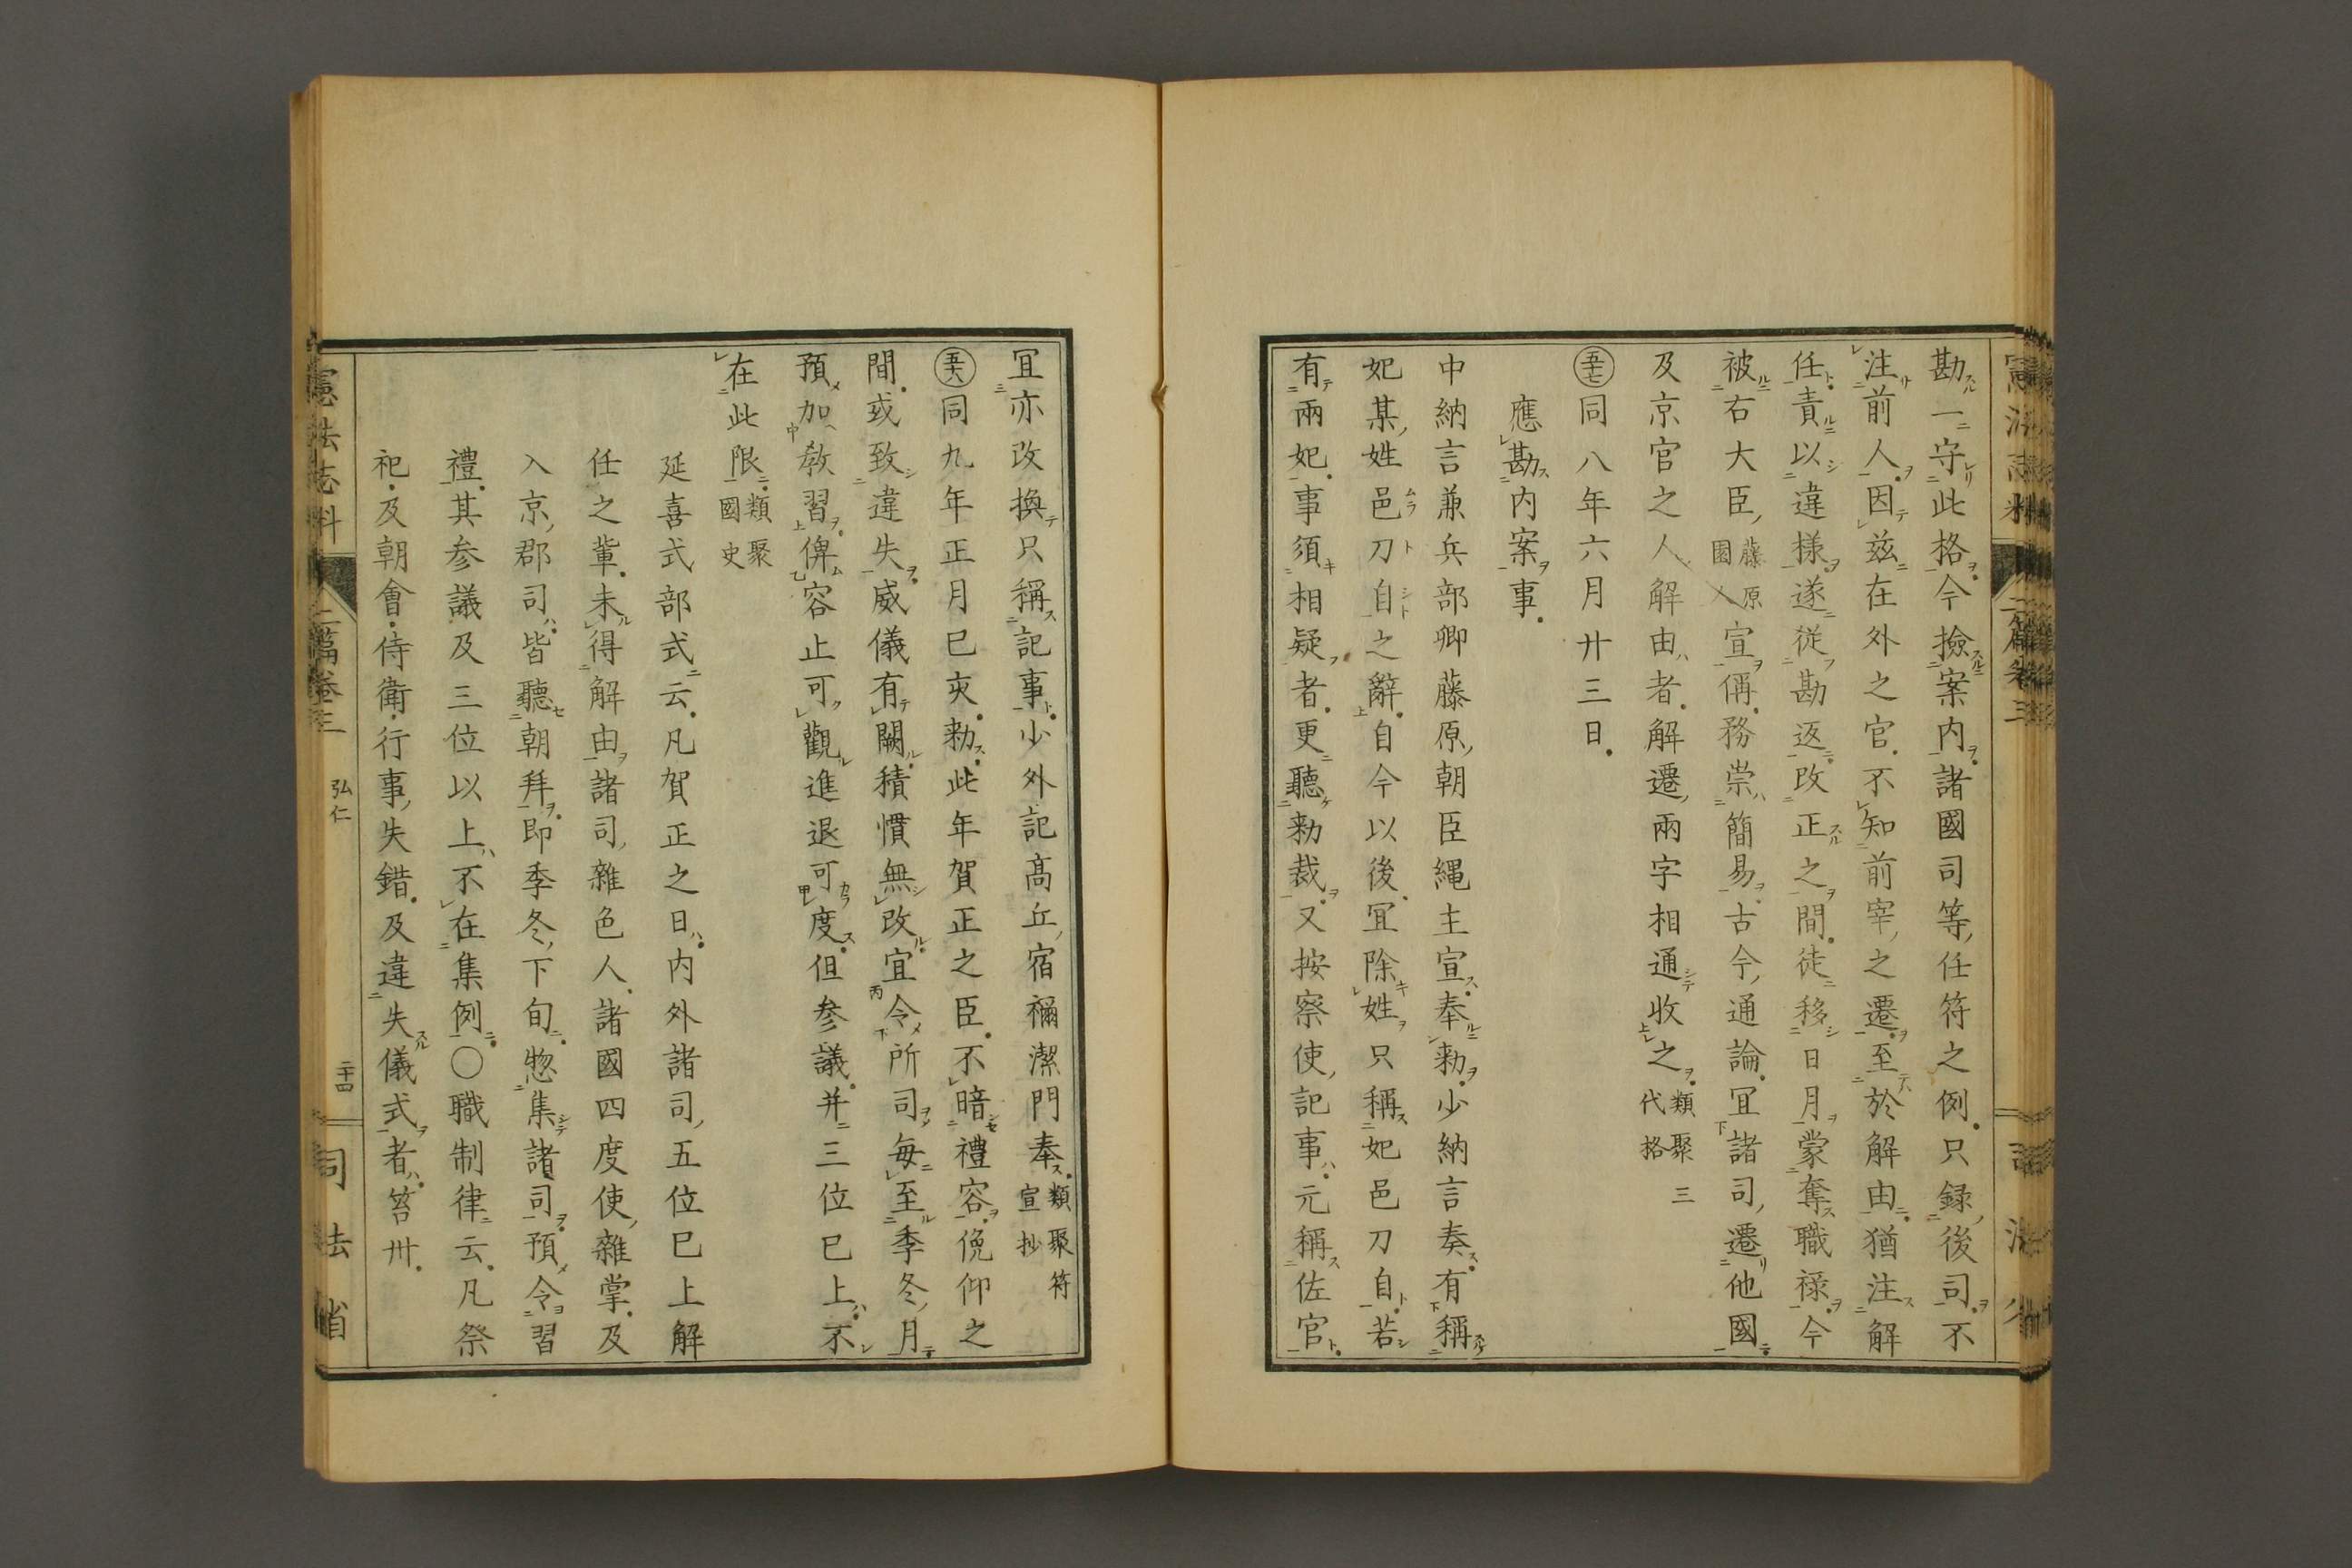 勘一守此格今撿案内諸國司等任符之例只録後司不
注前人因茲在外之官不知前宰之遷至於解由猶注解
任責以違様遂從勘返改正之間徒移日月蒙奪職禄今
被右大臣藤原園人宣偁務崇簡易古今通論宜諸司遷他國
及京官之人解由者解遷兩字相通收之類聚三代格
同八年六月廿三日
應勘内案事
中納言兼兵部卿藤原朝臣縄主宣奉勅少納言奏有稱
妃某姓邑刀自之辭自今以後宜除姓只稱妃邑刀自若
有兩妃事須相疑者更聽勅裁又按察使記事元稱佐官
宜亦改換只稱記事少外記髙丘宿禰潔門奉類聚符宣抄
同九年正月已亥勅此年賀正之臣不暗禮容俛仰之
間或致違失威儀有闕積慣無改宜令所司毎至季冬月
預加教習俾容止可觀進退可度但参議并三位已上不
在此限類聚國史
延喜式部式云凡賀正之日内外諸司五位已上解
任之輩未得解由諸司雜色人諸國四度使雜掌及
入京郡司皆聽朝拜即季冬下旬惣集諸司預令習
禮其参議及三位以上不在集例〇職制律云凡祭
祀及朝會侍衛行事失錯及違失儀式者笞卅
憲法志料 二篇巻三 弘仁 二十四 司法省